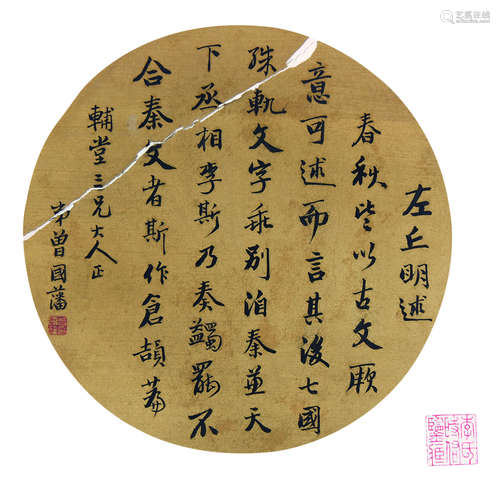 左丘明述
春秋皆以古文厥
意可述而言其後七國
殊軌文字乖别洎秦並天
下丞相李斯乃奏蠲罷不
合秦文者斯作倉頡篇
輔堂三兄大人正
弟曾國藩